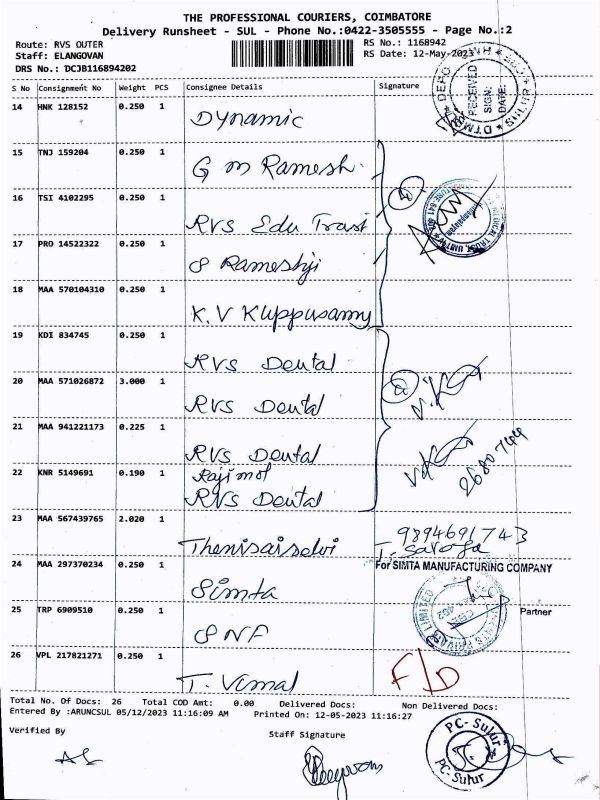 THE PROFESSIONAL COURIERS, COIMBATORE
Delivery Runsheet - SUL - Phone No.:0422-3505555 - Page No.:2
Route: RVS OUTER RS No.: 1168942
Staff: ELANGOVAN RS Date: 12-May-2023
DRS No.: DCJB116894202
S No Consignment No Weight PCS Consignee Details Signature
14 HNK 128152 0.250 1 Dynamic
15 TNJ 159204 0.250 1 G M Ramesh
16 TSI 4102295 0.250 1 RVS Edu Trust
17 PRO 14522322 0.250 1 S Rameshji
18 MAA 570104310 0.250 1 K.V Kuppusamy
19 KDI 834745 0.250 1 RVS Dental
20 MAA 571026872 3.000 1 RVS Dental
21 MAA 941221173 0.225 1 RVS Dental
22 KNR 5149691 0.190 1 Rajimol RVS Dental
26807444
23 MAA 567439765 2.020 1 Thenisaiselvi 9894691743
T. Saroja
For SIMTA MANUFACTURING COMPANY
24 MAA 297370234 0.250 1 Simta
Partner
25 TRP 6909510 0.250 1 SNF
26 VPL 217821271 0.250 1 T. Vimal F/D
Total No. Of Docs: 26 Total COD Amt: 0.00 Delivered Docs: Non Delivered Docs:
Entered By :ARUNCSUL 05/12/2023 11:16:09 AM Printed On: 12-05-2023 11:16:27
Verified By Staff Signature
PC-Sulur
PC-Sulur
RECEIVED
SIGN:
DATE: